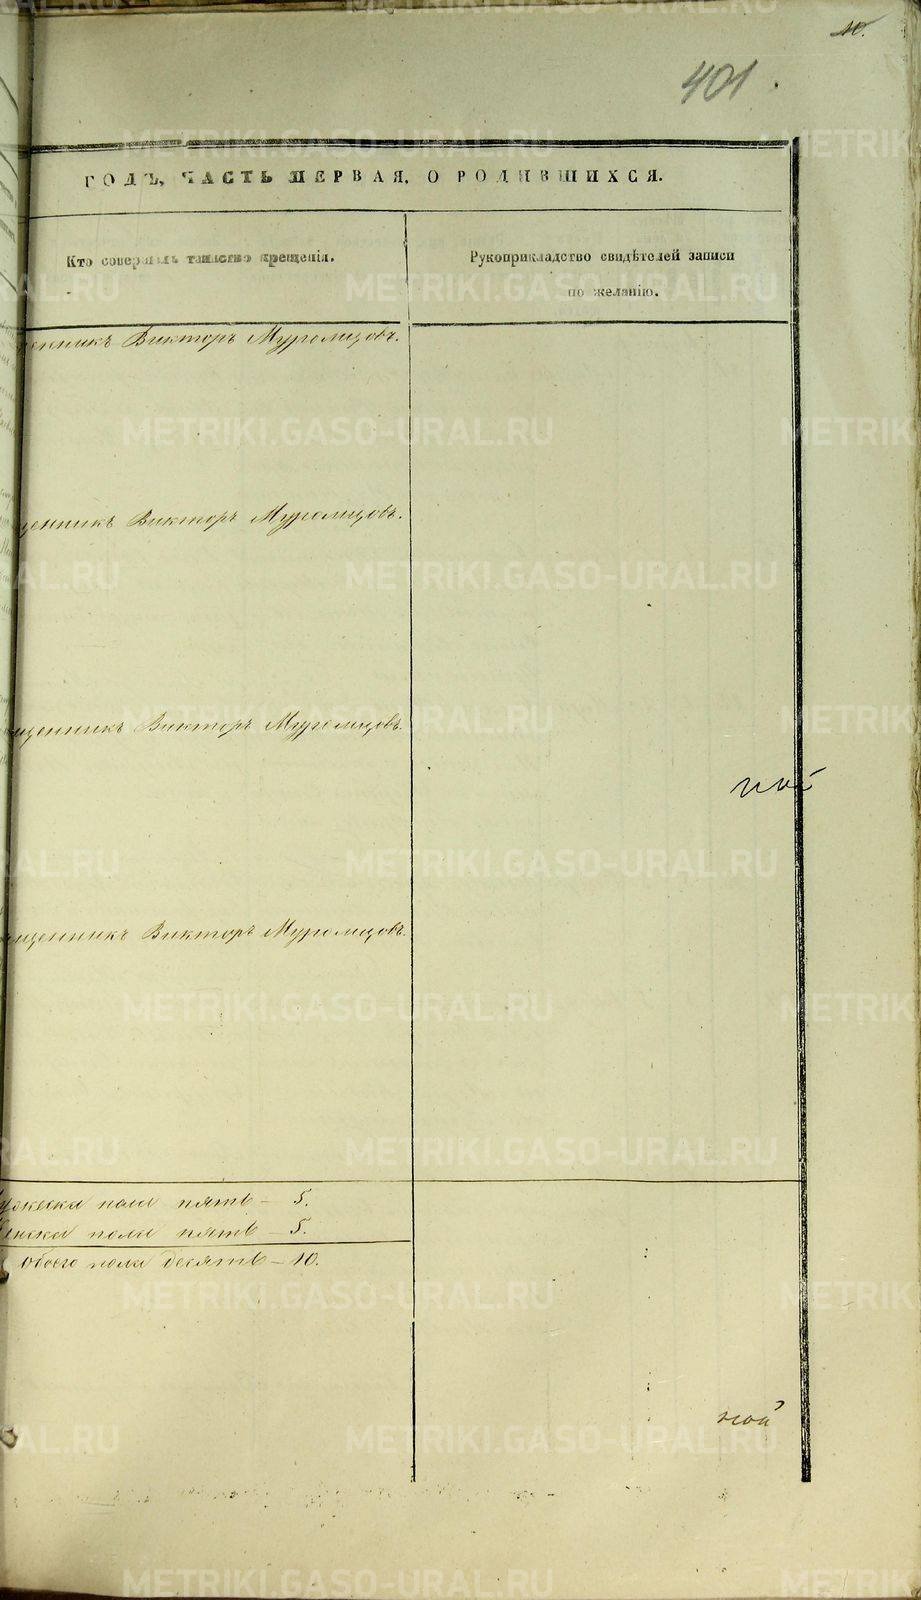 10.
401.
ГОДЪ, ЧАСТЬ ПЕРВАЯ, О РОДИВШИХСЯ.
Кто совершалъ таинство крещенія.
Рукоприкладство свидѣтелей записи
по желанію.
щенникъ Викторъ Муромцовъ.
щенникъ Викторъ Муромцовъ.
щенникъ Викторъ Муромцовъ.
ной
щенникъ Викторъ Муромцовъ.
пола пять – 5.
пола пять – 5.
Обоего пола десять – 10.
ной
METRIKI.GASO-URAL.RU